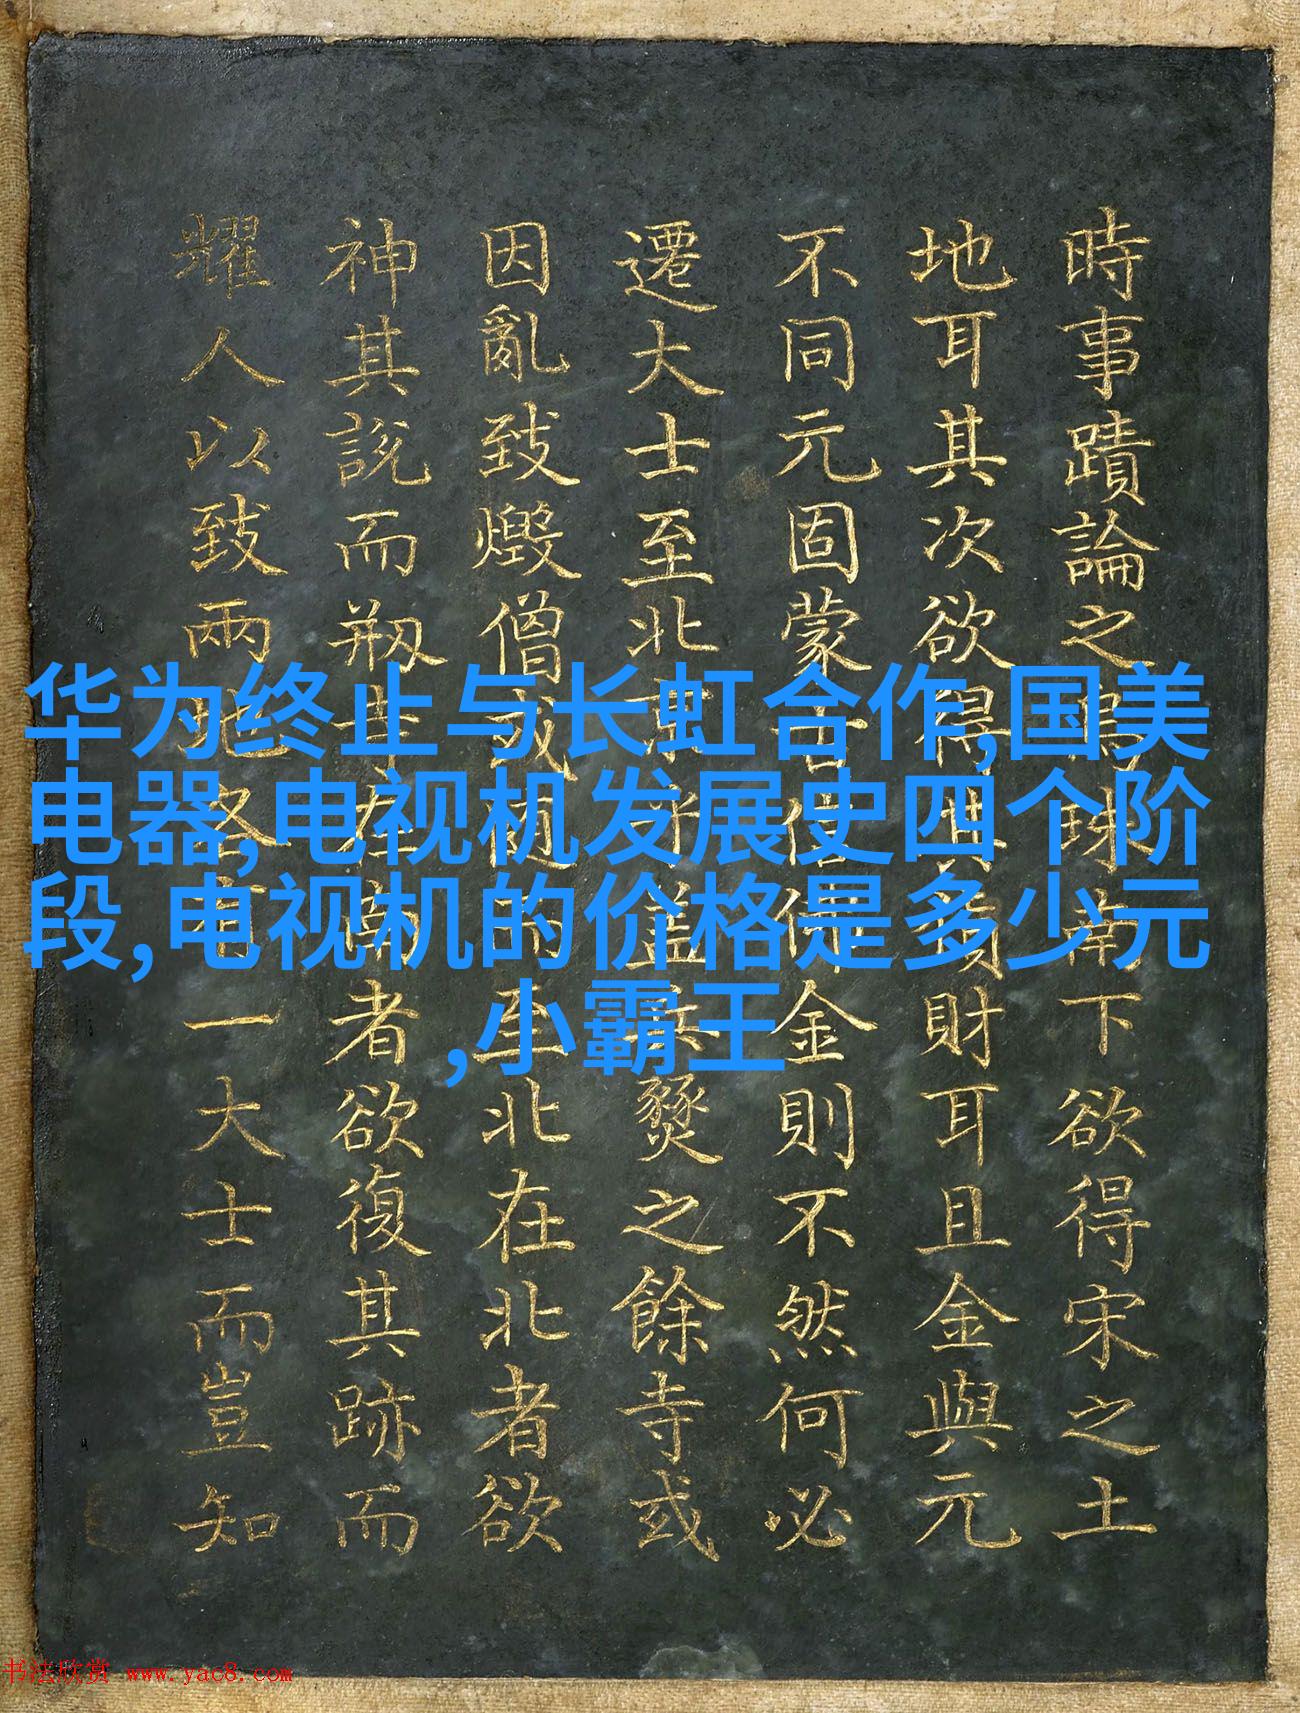 時事蹟論之烏珠南下欲得宋之土
地耳其次欲得其財耳且金與元
不同元固蒙古信佛金則不然何必
遷大士至北乎蓋兵燹之餘寺或
因亂致燬僧或隨而至北在北者欲
神其說而剏在南者欲復其跡而
耀人以致兩地各有一大士而豈知
华为终止与长虹合作,国美
电器,电视机发展史四个阶
段,电视机的价格是多少元
,小霸王
书法欣赏 www.yac8.com